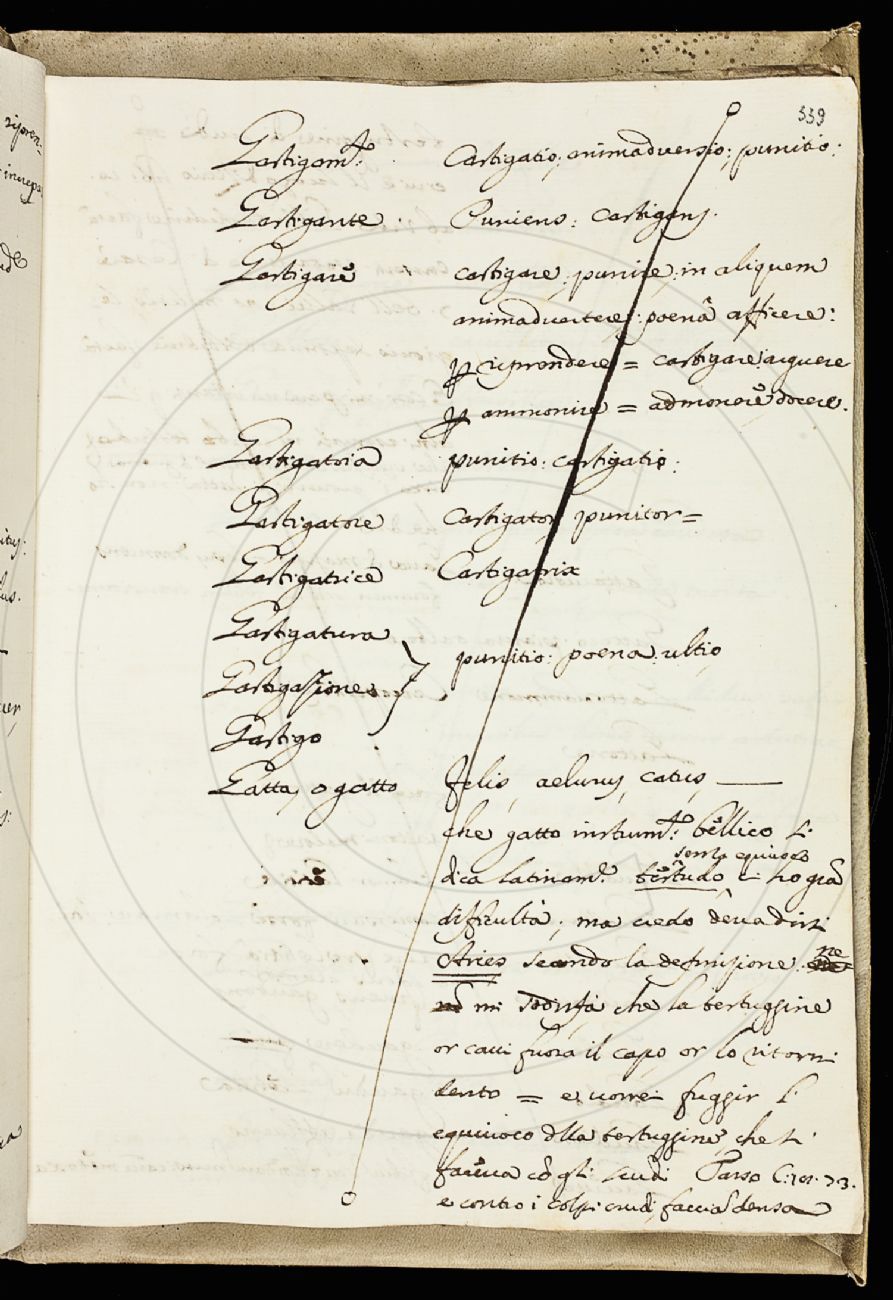 339
Gastigam.to Castigatio; animadversio; punitio:
Gastigante. Puniens: castigans.
Gastigare castigare; punire; in aliquem
animadvertere; poenâ afficere:
p riprendere = castigare: arguere
p ammonire = admonere, docere.
Gastigatoia punitio: castigatio:
Gastigatore Castigator, punitor =
Gastigatrice Castigatrix
Gastigatura
punitio: poena: ultio,
Gastigazione
Gastigo
Gatta, o gatto Felis, aelurus, catus,
che gatto instrum.to bellico si
senza equivoco
dica latinam.e testudo ci ho grã
difficultà; ma credo deva dirsi
Aries secondo la definizione: ne
mi sodisfà, che la testuggine
or cavi fuora il capo, or lo ritorni
dento = e vorrei fuggir l'
equivoco dlla testuggine, che si
faceva cõ gli scudi Tasso C: 18. 73.
e contro i colpi crudi, faccia densa
ripren-
increpa